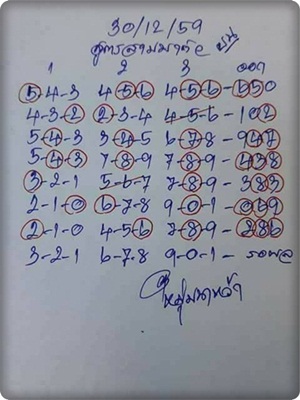 30/12/59
สูตรสามมาท้อ บน
1 2 3 ออก
5-4-3 4-5-6 4-5-6-650
4-3-2 2-3-4 4-5-6-102
5-4-3 3-4-5 6-7-8-947
5-4-3 7-8-9 7-8-9-438
3-2-1 5-6-7 7-8-9-383
2-1-0 6-7-8 9-0-1-069
2-1-0 4-5-6 7-8-9-286
3-2-1 6-7-8 9-0-1-รอผล